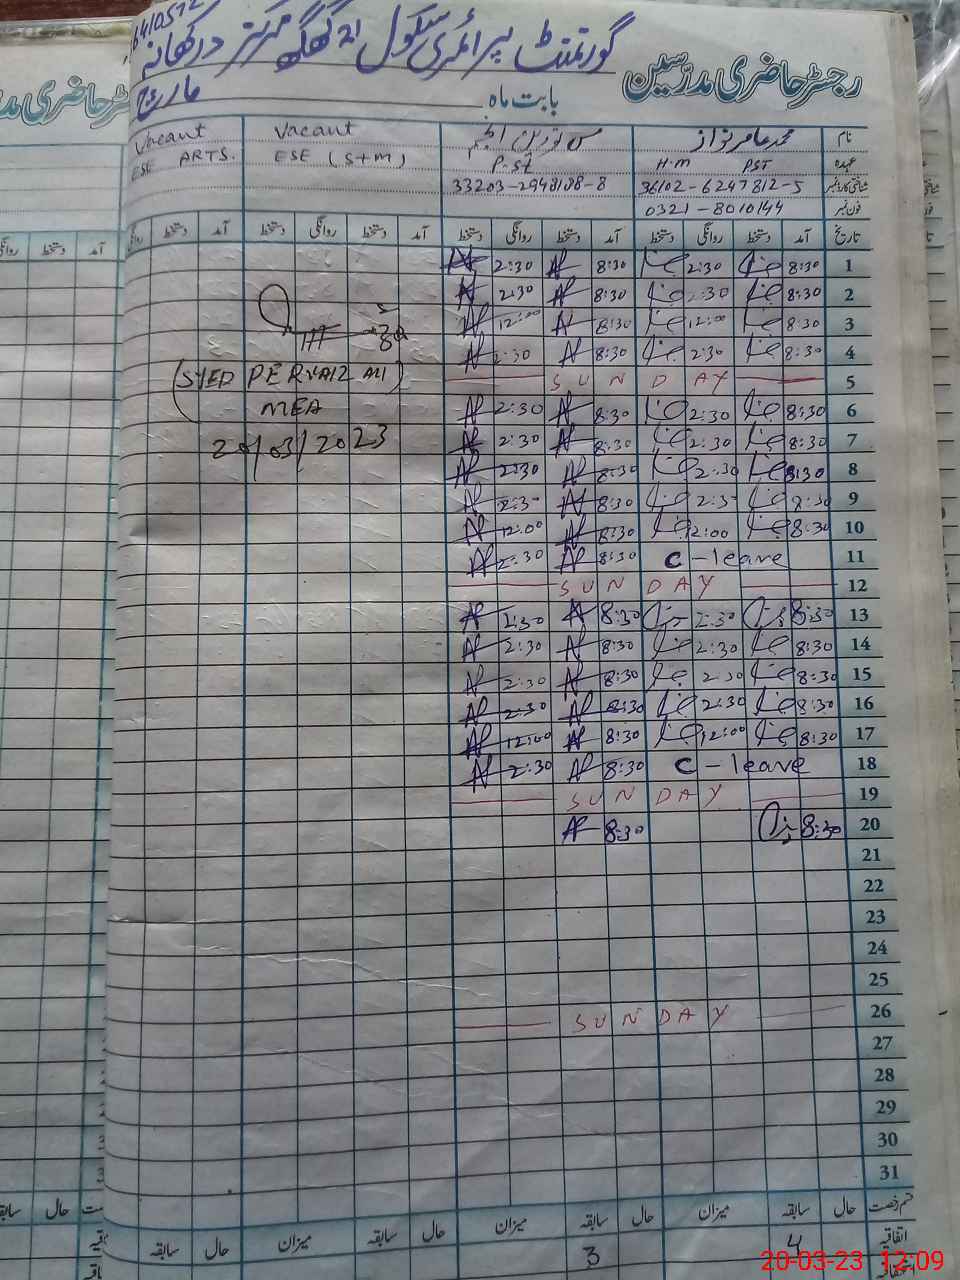 رجسٹر حاضری مدرسین
گورنمنٹ پرائمری سکول 21 گھگھ مرکز درکھانہ
بابت ماہ مارچ
نام محمد عامر نواز Vacant Vacant
عہدہ PST H.M P.st ESE (S+M) ESE ARTS.
36102-6247812-5 33203-2948188-8
فون نمبر 0321-8010144
تاریخ آمد دستخط روانگی دستخط آمد دستخط روانگی دستخط آمد دستخط روانگی دستخط آمد دستخط روانگی
1 8:30 2:30 8:30 2:30
2 8:30 2:30 8:30 2:30
3 8:30 12:00 8:30 12:00
4 8:30 2:30 8:30 2:30
5 SUNDAY
6 8:30 2:30 8:30 2:30
7 8:30 2:30 8:30 2:30
8 8:30 2:30 8:30 2:30
9 8:30 2:30 8:30 2:30
10 8:30 12:00 8:30 12:00
11 C-leave 8:30 2:30
12 SUNDAY
13 8:30 2:30 8:30 2:30
14 8:30 2:30 8:30 2:30
15 8:30 2:30 8:30 2:30
16 8:30 2:30 8:30 2:30
17 8:30 12:00 8:30 12:00
18 C-leave 8:30 2:30
19 SUNDAY
20 8:30 8:30
21
22
23
24
25
26 SUNDAY
27
28
29
30
31
(SYED PERVAIZ ALI)
MEA
20/03/2023
قسم رخصت حال سابقہ میزان حال سابقہ میزان حال سابقہ میزان حال سابقہ
اتفاقیہ 4 3
20-03-23 12:09